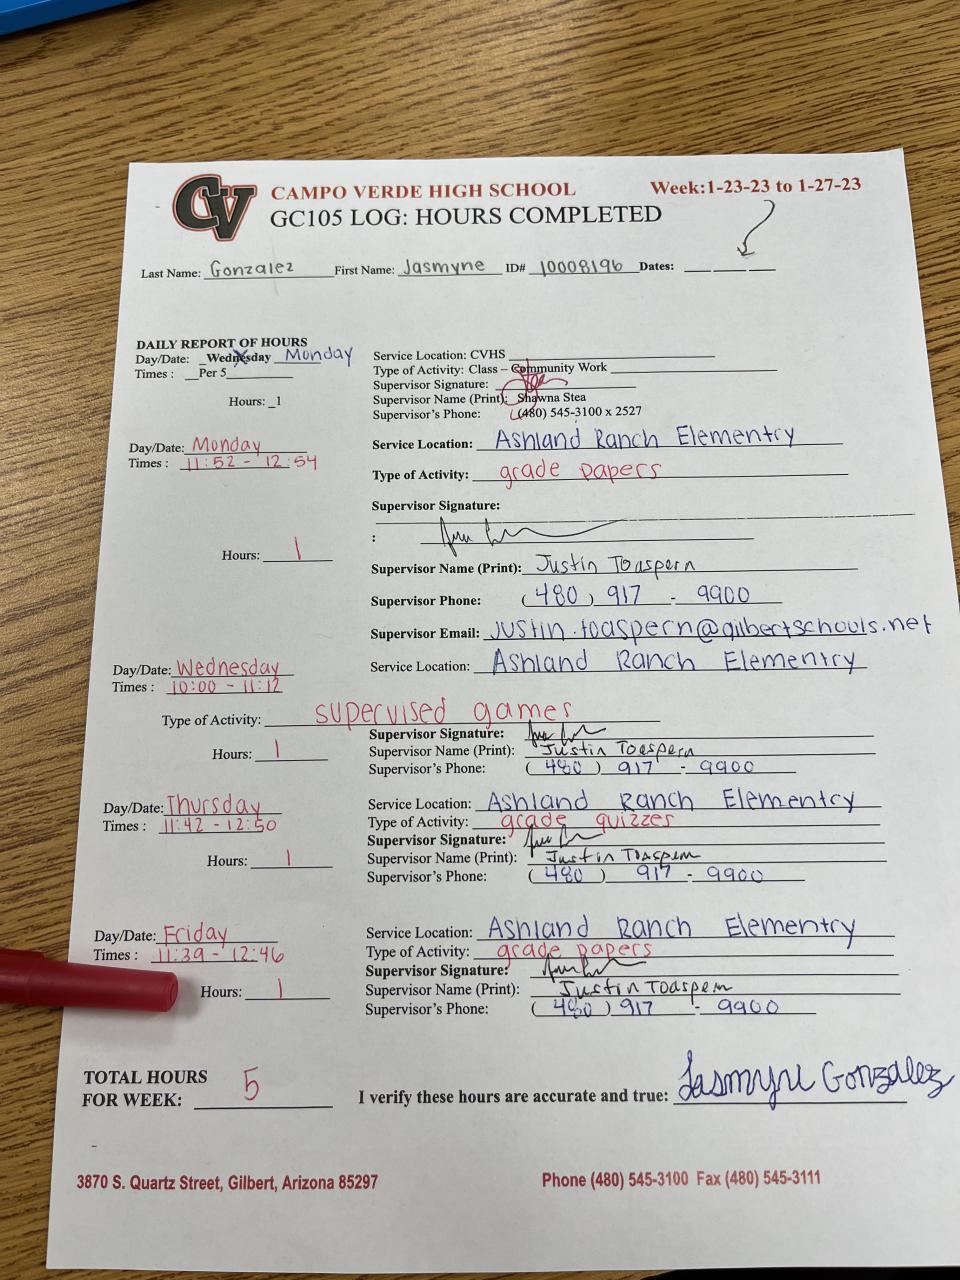 CV CAMPO VERDE HIGH SCHOOL Week:1-23-23 to 1-27-23
GC105 LOG: HOURS COMPLETED
Last Name: Gonzalez First Name: Jasmyne ID# 10008196 Dates: ___ ___ ___
DAILY REPORT OF HOURS
Day/Date: _Wednesday Monday
Times : __Per 5
Hours: _1
Service Location: CVHS
Type of Activity: Class – Community Work
Supervisor Signature:
Supervisor Name (Print): Shawna Stea
Supervisor's Phone: (480) 545-3100 x 2527
Day/Date: Monday
Times : 11:52 - 12:54
Hours: 1
Service Location: Ashland Ranch Elementry
Type of Activity: grade papers
Supervisor Signature:
:
Supervisor Name (Print): Justin Toaspern
Supervisor Phone: (480) 917 - 9900
Supervisor Email: justin.toaspern@gilbertschools.net
Day/Date: Wednesday
Times : 10:00 - 11:12
Service Location: Ashland Ranch Elementry
Type of Activity: supervised games
Hours: 1
Supervisor Signature:
Supervisor Name (Print): Justin Toaspern
Supervisor's Phone: (480) 917 - 9900
Day/Date: Thursday
Times : 11:42 - 12:50
Hours: 1
Service Location: Ashland Ranch Elementry
Type of Activity: grade quizzes
Supervisor Signature:
Supervisor Name (Print): Justin Toaspern
Supervisor's Phone: (480) 917 - 9900
Day/Date: Friday
Times : 11:39 - 12:46
Hours: 1
Service Location: Ashland Ranch Elementry
Type of Activity: grade papers
Supervisor Signature:
Supervisor Name (Print): Justin Toaspern
Supervisor's Phone: (480) 917 - 9900
TOTAL HOURS
FOR WEEK: 5
I verify these hours are accurate and true: Jasmyne Gonzalez
3870 S. Quartz Street, Gilbert, Arizona 85297 Phone (480) 545-3100 Fax (480) 545-3111